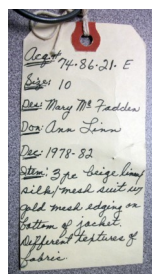 Acq# 74.86.21.E
Size: 10
Des: Mary Mc Fadden
Don: Ann Linn
Dec: 1978-82
Item: 3 pc beige linen/
silk/mesh suit w/
gold mesh edging on
bottom of jacket.
Different textures of
fabric.